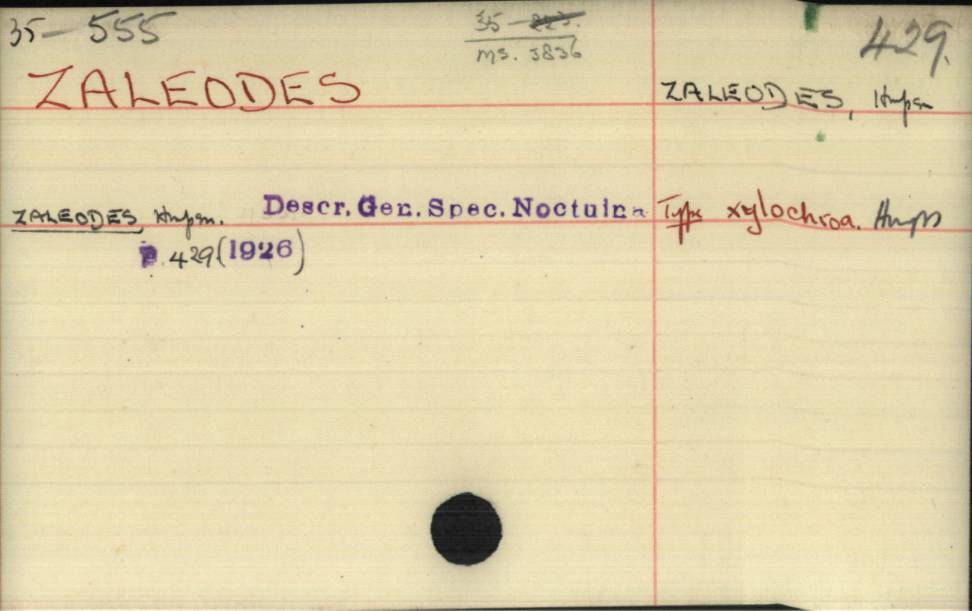 35-555
35-
ms. 3836
429.
ZALEODES
ZALEODES, Hmpsn
ZALEODES Hmpsn. Descr. Gen. Spec. Noctuina
Type xylochroa. Hmps
P. 429 (1926)